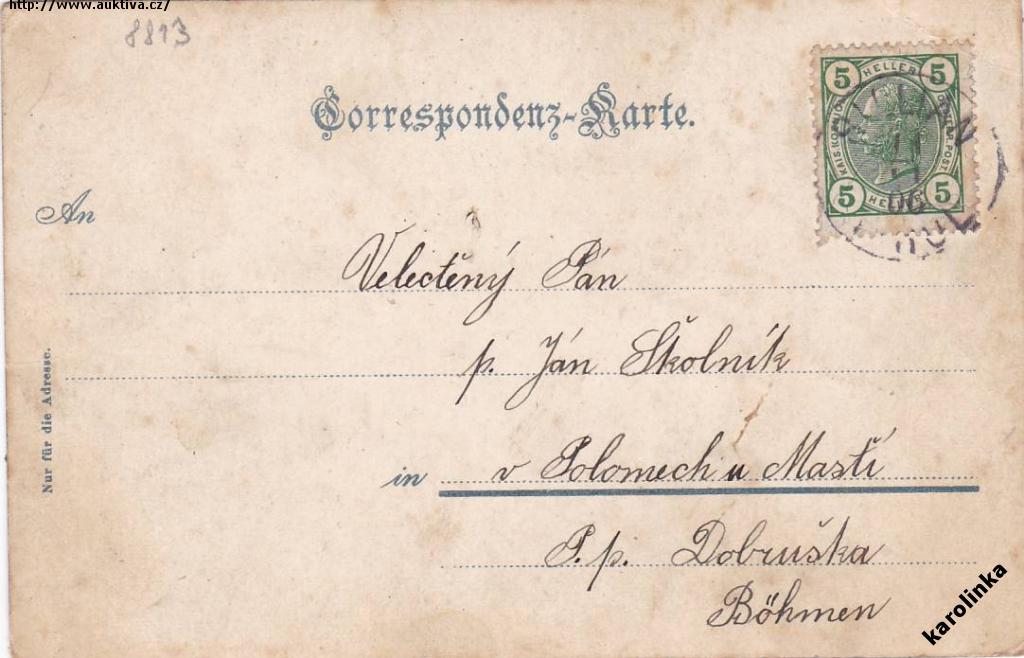 http://www.auktiva.cz/
8813
Correspondenz-Karte.
5 HELLER 5
KAIS. KOENIGL. OESTERR. POST
5 HELLER 5
An
Velectěný Pán
p. Ján Školník
in v Polomech u Mastí
P.p. Dobruška
Böhmen
Nur für die Adresse.
karolinka